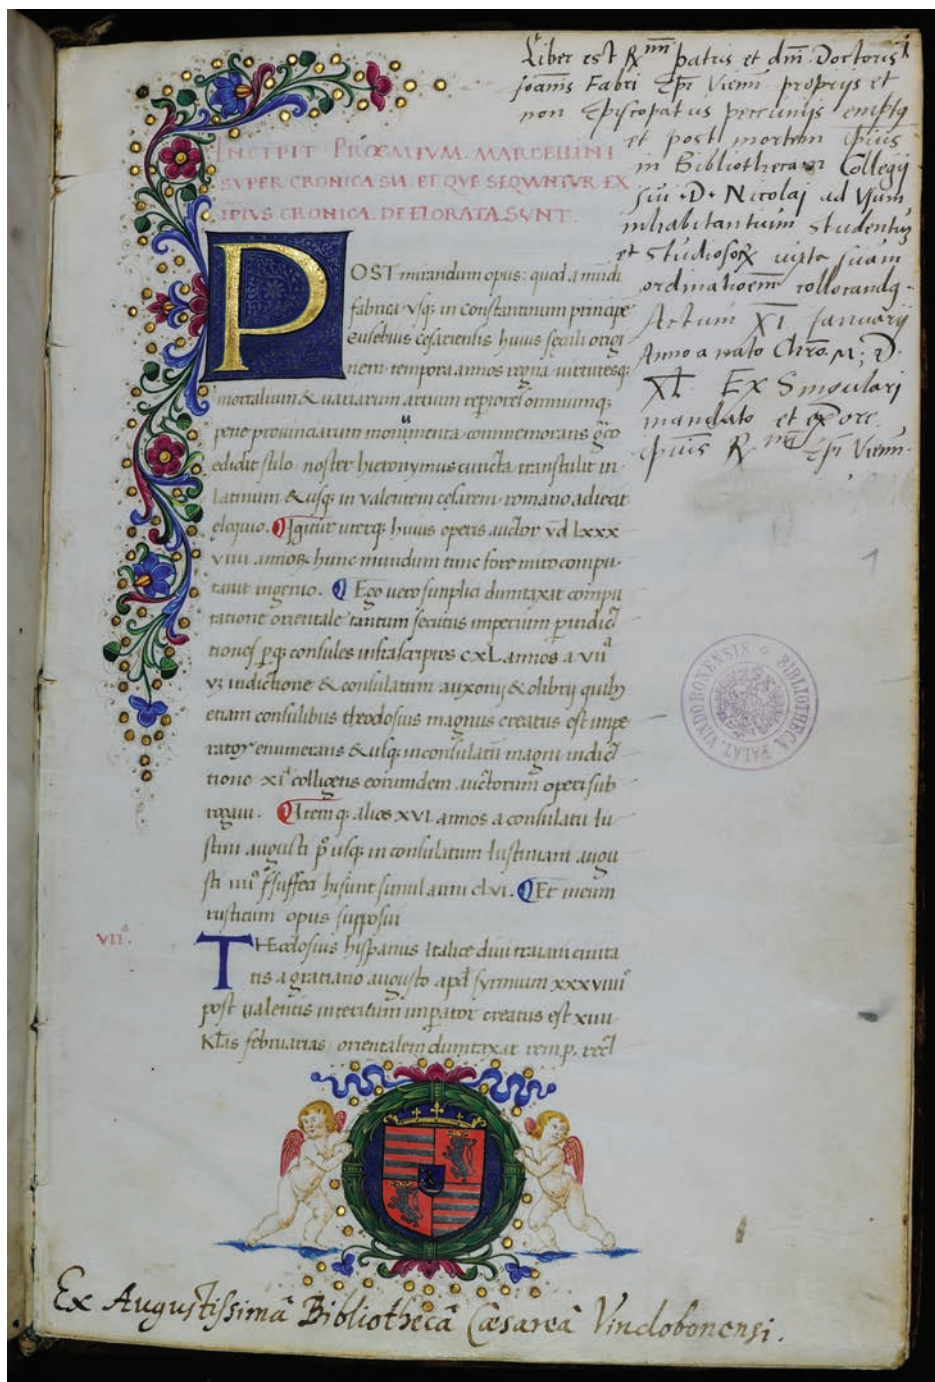 Liber est R<sup>mi</sup> patris et dni Doctoris
Joanis Fabri Epi Vienn proprijs et
non Episcopatus peccunijs empt9
et post mortem ipius
in Bibliothecam Collegij
sui D. Nicolaj ad Usum
inhabitantium Studentu
et Studiosorum iuxta suam
ordinationem collocand9
Actum XI Januarij
Anno a nato Chro. M. D.
XL. Ex Singulari
mandato et ore
ipius R<sup>mi</sup> Epi Vienn.
1
INCIPIT PROEMIVM MARCELLINI
SVPER CRONICA SVA ET QVE SEQVNTVR EX
IPIVS CRONICA DEFLORATA SVNT.
POST mirandum opus: quod a mudi
fabrica usq; in Constantinum principe
eusebius cesariensis huius seculi origi
nem tempora annos regna uirtutesq;
mortalium & uariarum artium reptores omniumq;
pene prouinciarum monumenta commemorans greco
edidit stilo noster hieronymus cuncta transtulit in
latinum & usq; in ualentem cesarem romano adiecit
eloquio. Igitur uterq; huius operis auctor vd lxxx
viiii annos hunc mundum tunc fore miro compu
tauit ingenio. Ego uero simplici dumtaxat compu
tatione orientale tantum secutus imperium p indic
tiones pq; consules infrascriptos CXL annos a vii<sup>a</sup>
vz indictione & consulatum auxonij & olibrij quib9
etiam consulibus theodosius magnus creatus est impe
rator enumerans & usq; in consulatu magni indic
tione xi<sup>a</sup> colligens eorumdem auctorum operi sub
rogaui. Itemq; alios XVI annos a consulatu Iu
stini augusti p<sup>o</sup> usq; in consulatum Iustiniani augu
sti iiii<sup>o</sup> suffeci hi sunt simul anni clvi. Et meum
rusticum opus supposui
VII<sup>a</sup>.
THEodosius hispanus italice diui traiani ciuita
tis a gratiano augusto apd syrmium xxxviiii<sup>o</sup>
post ualentis interitum imperator creatus est xiiii
Klas februarias orientalem dumtaxat remp. rect
BIBLIOTHECA PALAT. VINDOBONENSIS
1
Ex Augustissimâ Bibliothecâ Cæsareâ Vindobonensi.